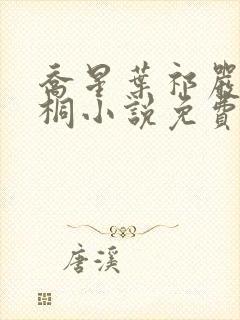 喬星葉祁嚴
桐小說免費
唐溪